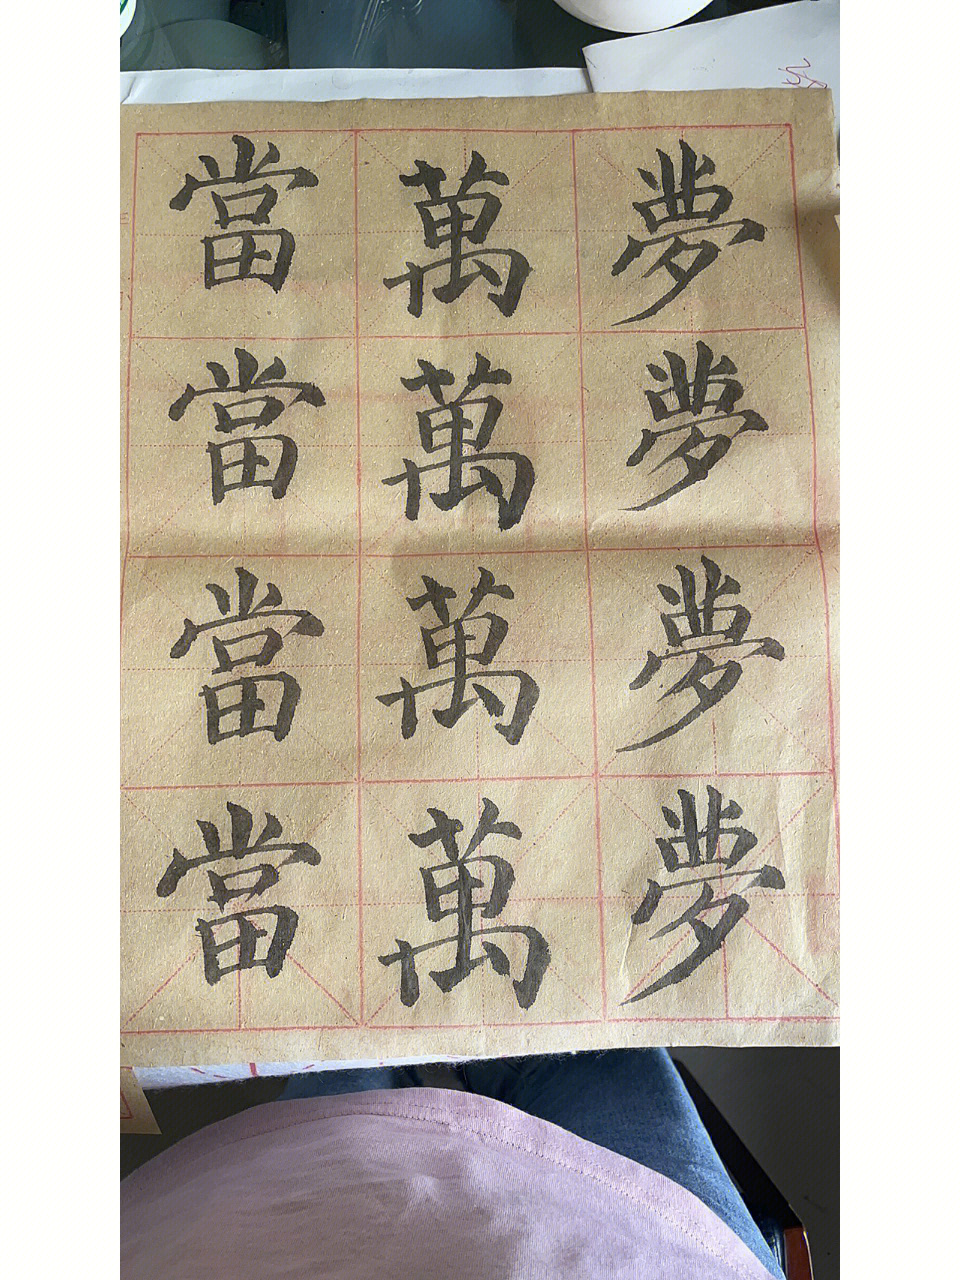 夢夢夢夢
萬萬萬萬
當當當當